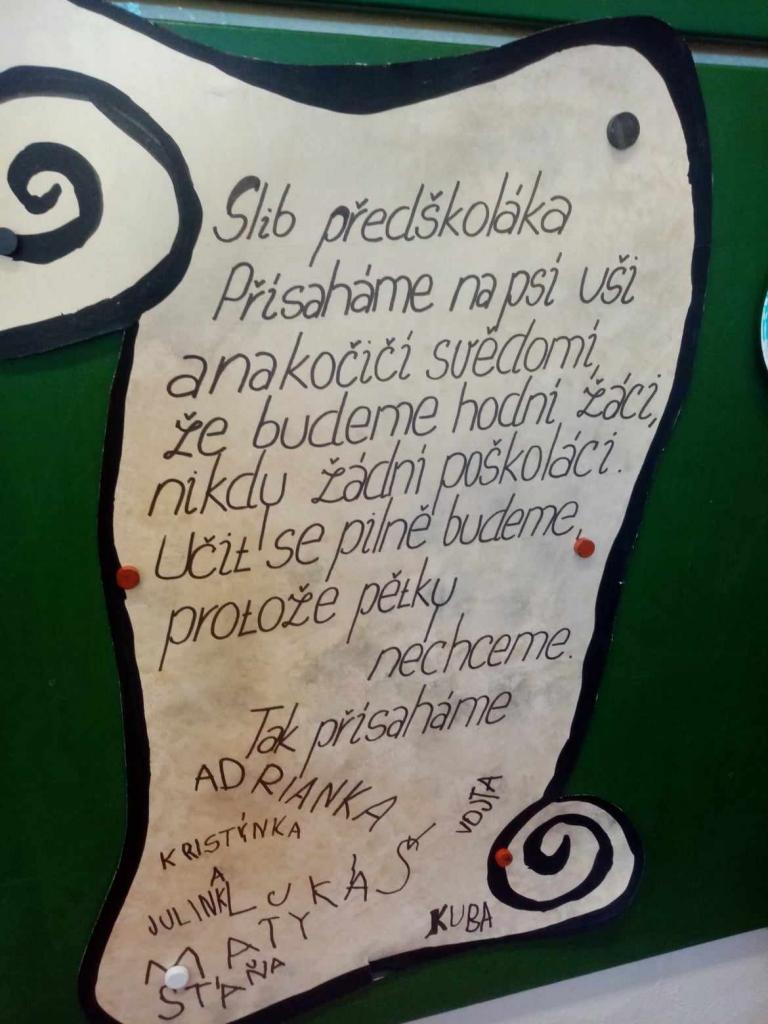 Slib předškoláka
Přísaháme na psí uši
a na kočičí svědomí,
že budeme hodní žáci,
nikdy žádní poškoláci.
Učit se pilně budeme,
protože pětky
nechceme.
Tak přísaháme
ADRIANKA
VOJTA
KRISTÝNKA
JULINKA
LUKÁŠ
KUBA
MATY
STÁŇA